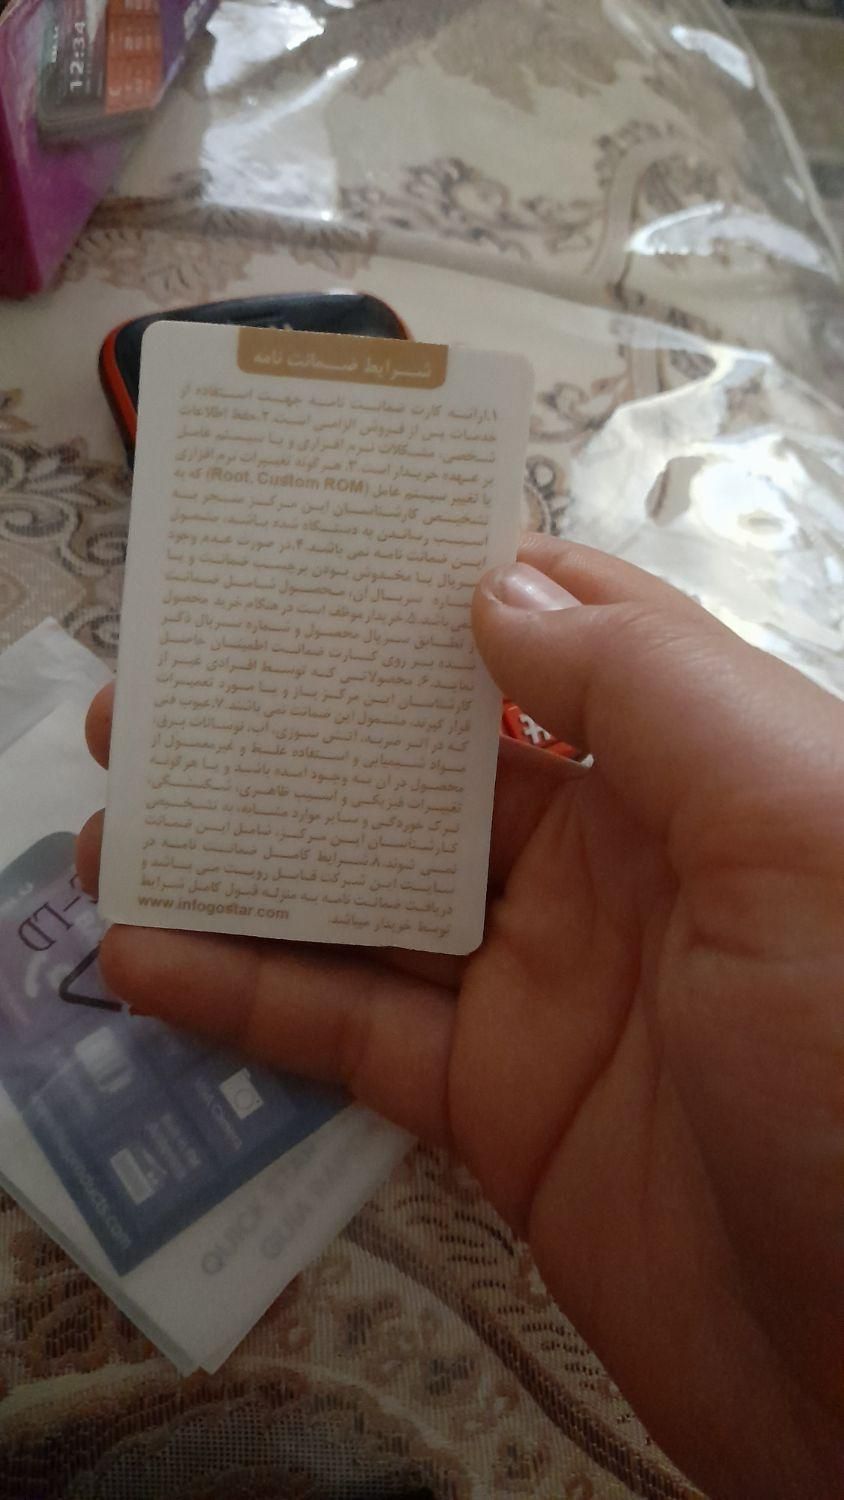 12:34
شرایط ضمانت نامه
۱.ارائه کارت ضمانت نامه جهت استفاده از
خدمات پس از فروش الزامی است.۲.حفظ اطلاعات
شخصی، مشکلات نرم افزاری و یا سیستم عامل
بر عهده خریدار است.۳.هرگونه تغییرات نرم افزاری
یا تغییر سیستم عامل (Root, Custom ROM) که به
تشخیص کارشناسان این مرکز منجر به
آسیب رساندن به دستگاه شده باشد، مشمول
این ضمانت نامه نمی باشد.۴.در صورت عدم وجود
سریال یا مخدوش بودن برچسب ضمانت و یا
شماره سریال آن، محصول شامل ضمانت
نمی باشد.۵.خریدار موظف است در هنگام خرید محصول
از تطابق سریال محصول و شماره سریال ذکر
شده بر روی کارت ضمانت اطمینان حاصل
نماید.۶.محصولاتی که توسط افرادی غیر از
کارشناسان این مرکز باز و یا مورد تعمیرات
قرار گیرند، مشمول این ضمانت نمی باشند.۷.عیوب فنی
که در اثر ضربه، آتش سوزی، آب، نوسانات برق،
مواد شیمیایی و استفاده غلط و غیرمعمول از
محصول در آن به وجود آمده باشد و یا هرگونه
تغییرات فیزیکی و آسیب ظاهری، شکستگی،
ترک خوردگی و سایر موارد مشابه، به تشخیص
کارشناسان این مرکز، شامل این ضمانت
نمی شوند.۸.شرایط کامل ضمانت نامه در
سایت این شرکت قابل رویت می باشد و
دریافت ضمانت نامه به منزله قبول کامل شرایط
توسط خریدار میباشد. www.infogostar.com
QUICK